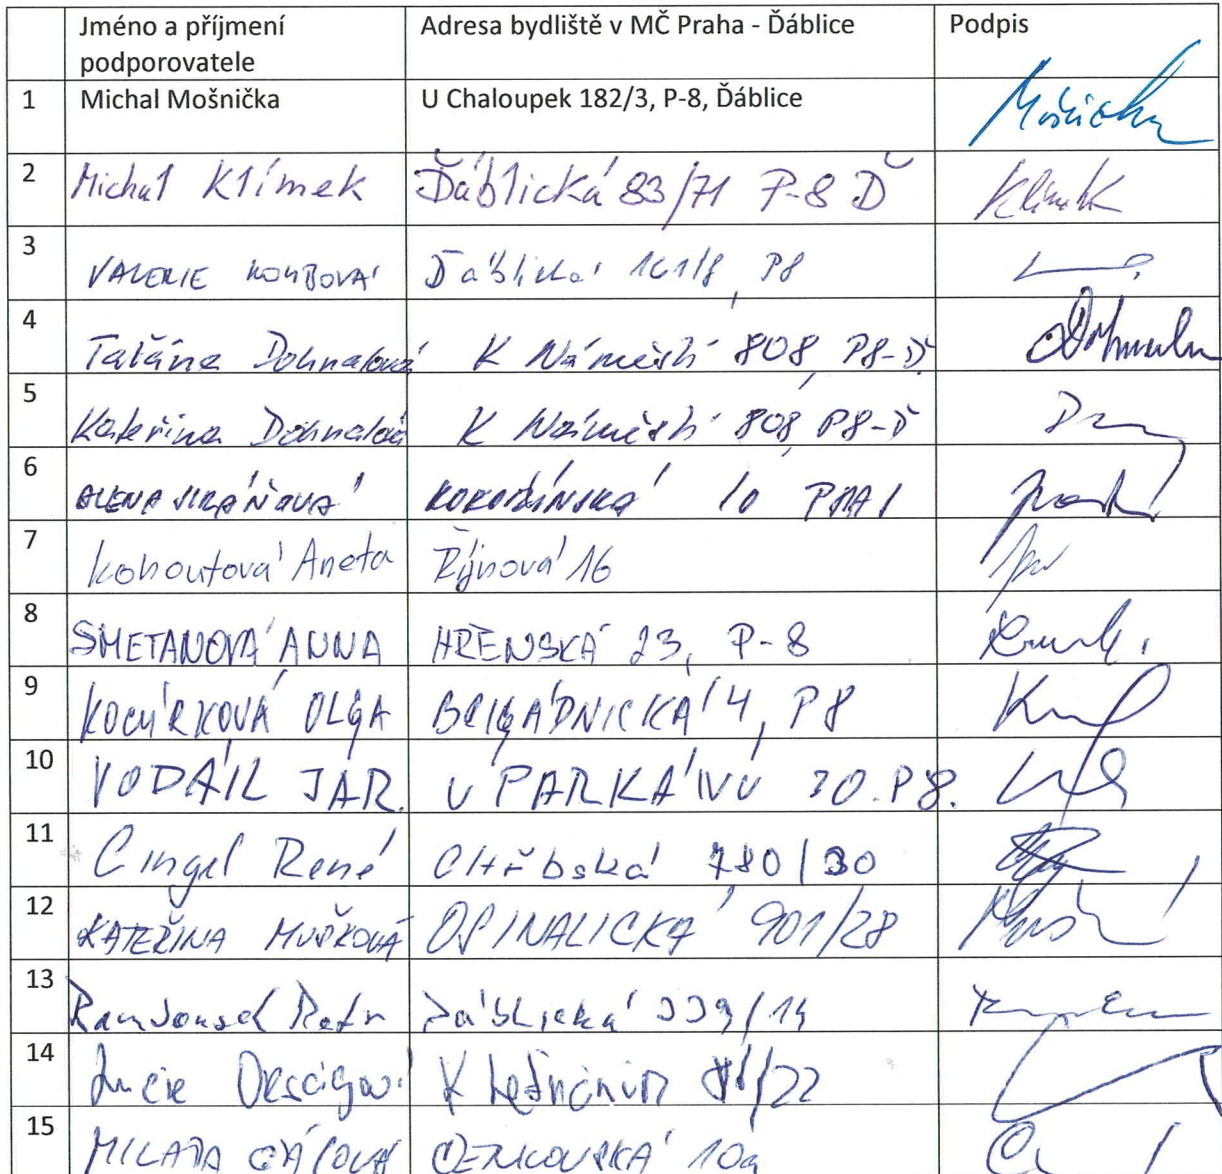 Jméno a příjmení Adresa bydliště v MČ Praha - Ďáblice Podpis
podporovatele
1 Michal Mošnička U Chaloupek 182/3, P-8, Ďáblice Mošnička
2 Michal Klímek Ďáblická 83/71 P-8 Ď Klímek
3 VALERIE Ďáblická P8
4 Taťána Dohnalová K Náměstí 808, P8-Ď
5 Kateřina Dohnalová K Náměstí 808, P8-Ď
6 ALENA KOKOŘÍNSKÁ 10
7 Kohoutová Aneta Říjnová 16
8 SMETANOVÁ ANNA HŘENSKÁ 23, P-8
9 KOCÚRKOVÁ OLGA BRIGÁDNICKÁ 4, P8
10 VODÁIL JAR. U PARKÁNU 30. P8.
11 Cingel René CHřibská 780/30
12 KATEŘINA MUŠKOVÁ OSINALICKÁ 901/28
13 Petr Ďáblická 339/14
14 Lucie K Letňanům /22
15 MILADA 10a